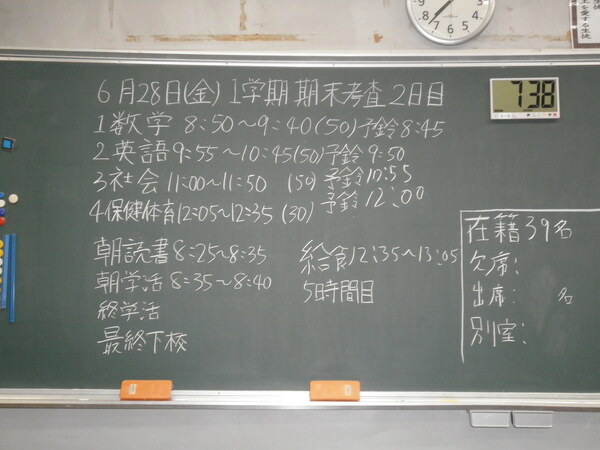 6月28日(金) 1学期 期末考査 2日目
1 数学 8:50〜9:40(50)予鈴8:45
2 英語 9:55〜10:45(50)予鈴 9:50
3 社会 11:00〜11:50 (50)予鈴10:55
4 保健体育12:05〜12:35 (30) 予鈴12:00
朝読書 8:25〜8:35
朝学活 8:35〜8:40
終学活
最終下校
給食12:35〜13:05
5日時間目
在籍39名
欠席:
出席: 名
別室:
738
を愛する生徒